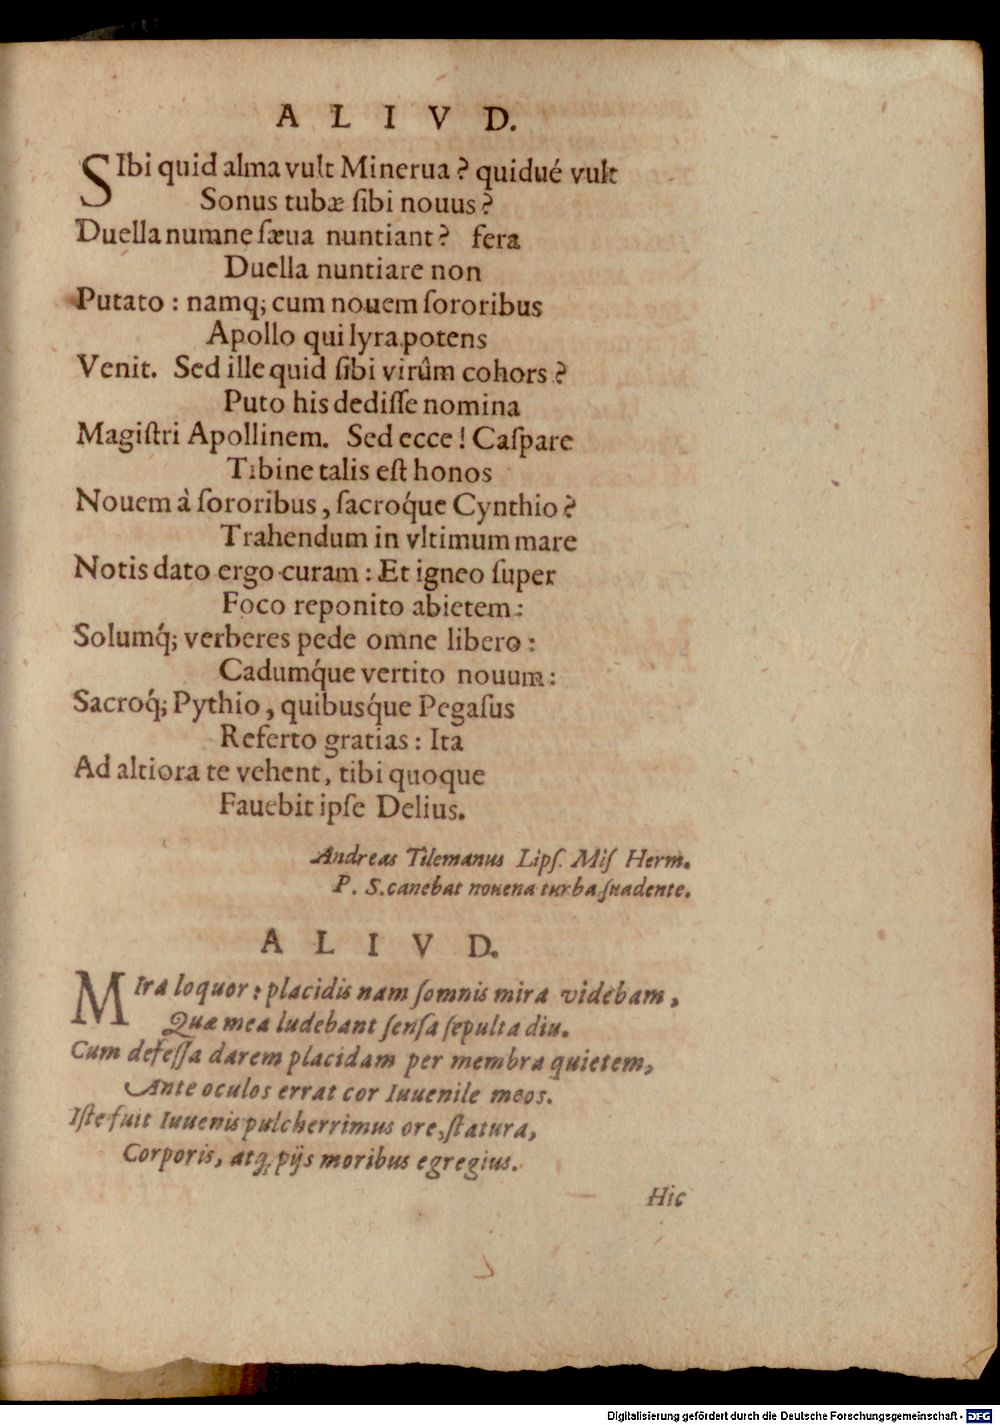 A L I V D.
SIbi quid alma vult Minerua? quidué vult
Sonus tubæ ſibi nouus?
Duella numne ſæua nuntiant? fera
Duella nuntiare non
Putato: namq; cum nouem ſororibus
Apollo qui lyra potens
Venit. Sed ille quid ſibi virûm cohors?
Puto his dediſſe nomina
Magiſtri Apollinem. Sed ecce! Caſpare
Tibine talis eſt honos
Nouem à ſororibus, ſacroq́ue Cynthio?
Trahendum in vltimum mare
Notis dato ergo curam: Et igneo ſuper
Foco reponito abietem:
Solumq́; verberes pede omne libero:
Cadumq́ue vertito nouum:
Sacroq́; Pythio, quibusq́ue Pegaſus
Referto gratias: Ita
Ad altiora te vehent, tibi quoque
Fauebit ipſe Delius.
Andreas Tilemanus Lipſ. Miſ Herm.
P. S. canebat nouena turba ſuadente.
A L I V D.
MIra loquor: placidis nam ſomnis mira videbam,
Quæ mea ludebant ſenſa ſepulta diu.
Cum defeſſa darem placidam per membra quietem,
Ante oculos errat cor Iuuenile meos.
Iſte fuit Iuuenis pulcherrimus ore, ſtatura,
Corporis, atq; pijs moribus egregius.
Hic
Digitalisierung gefördert durch die Deutsche Forschungsgemeinschaft - DFG